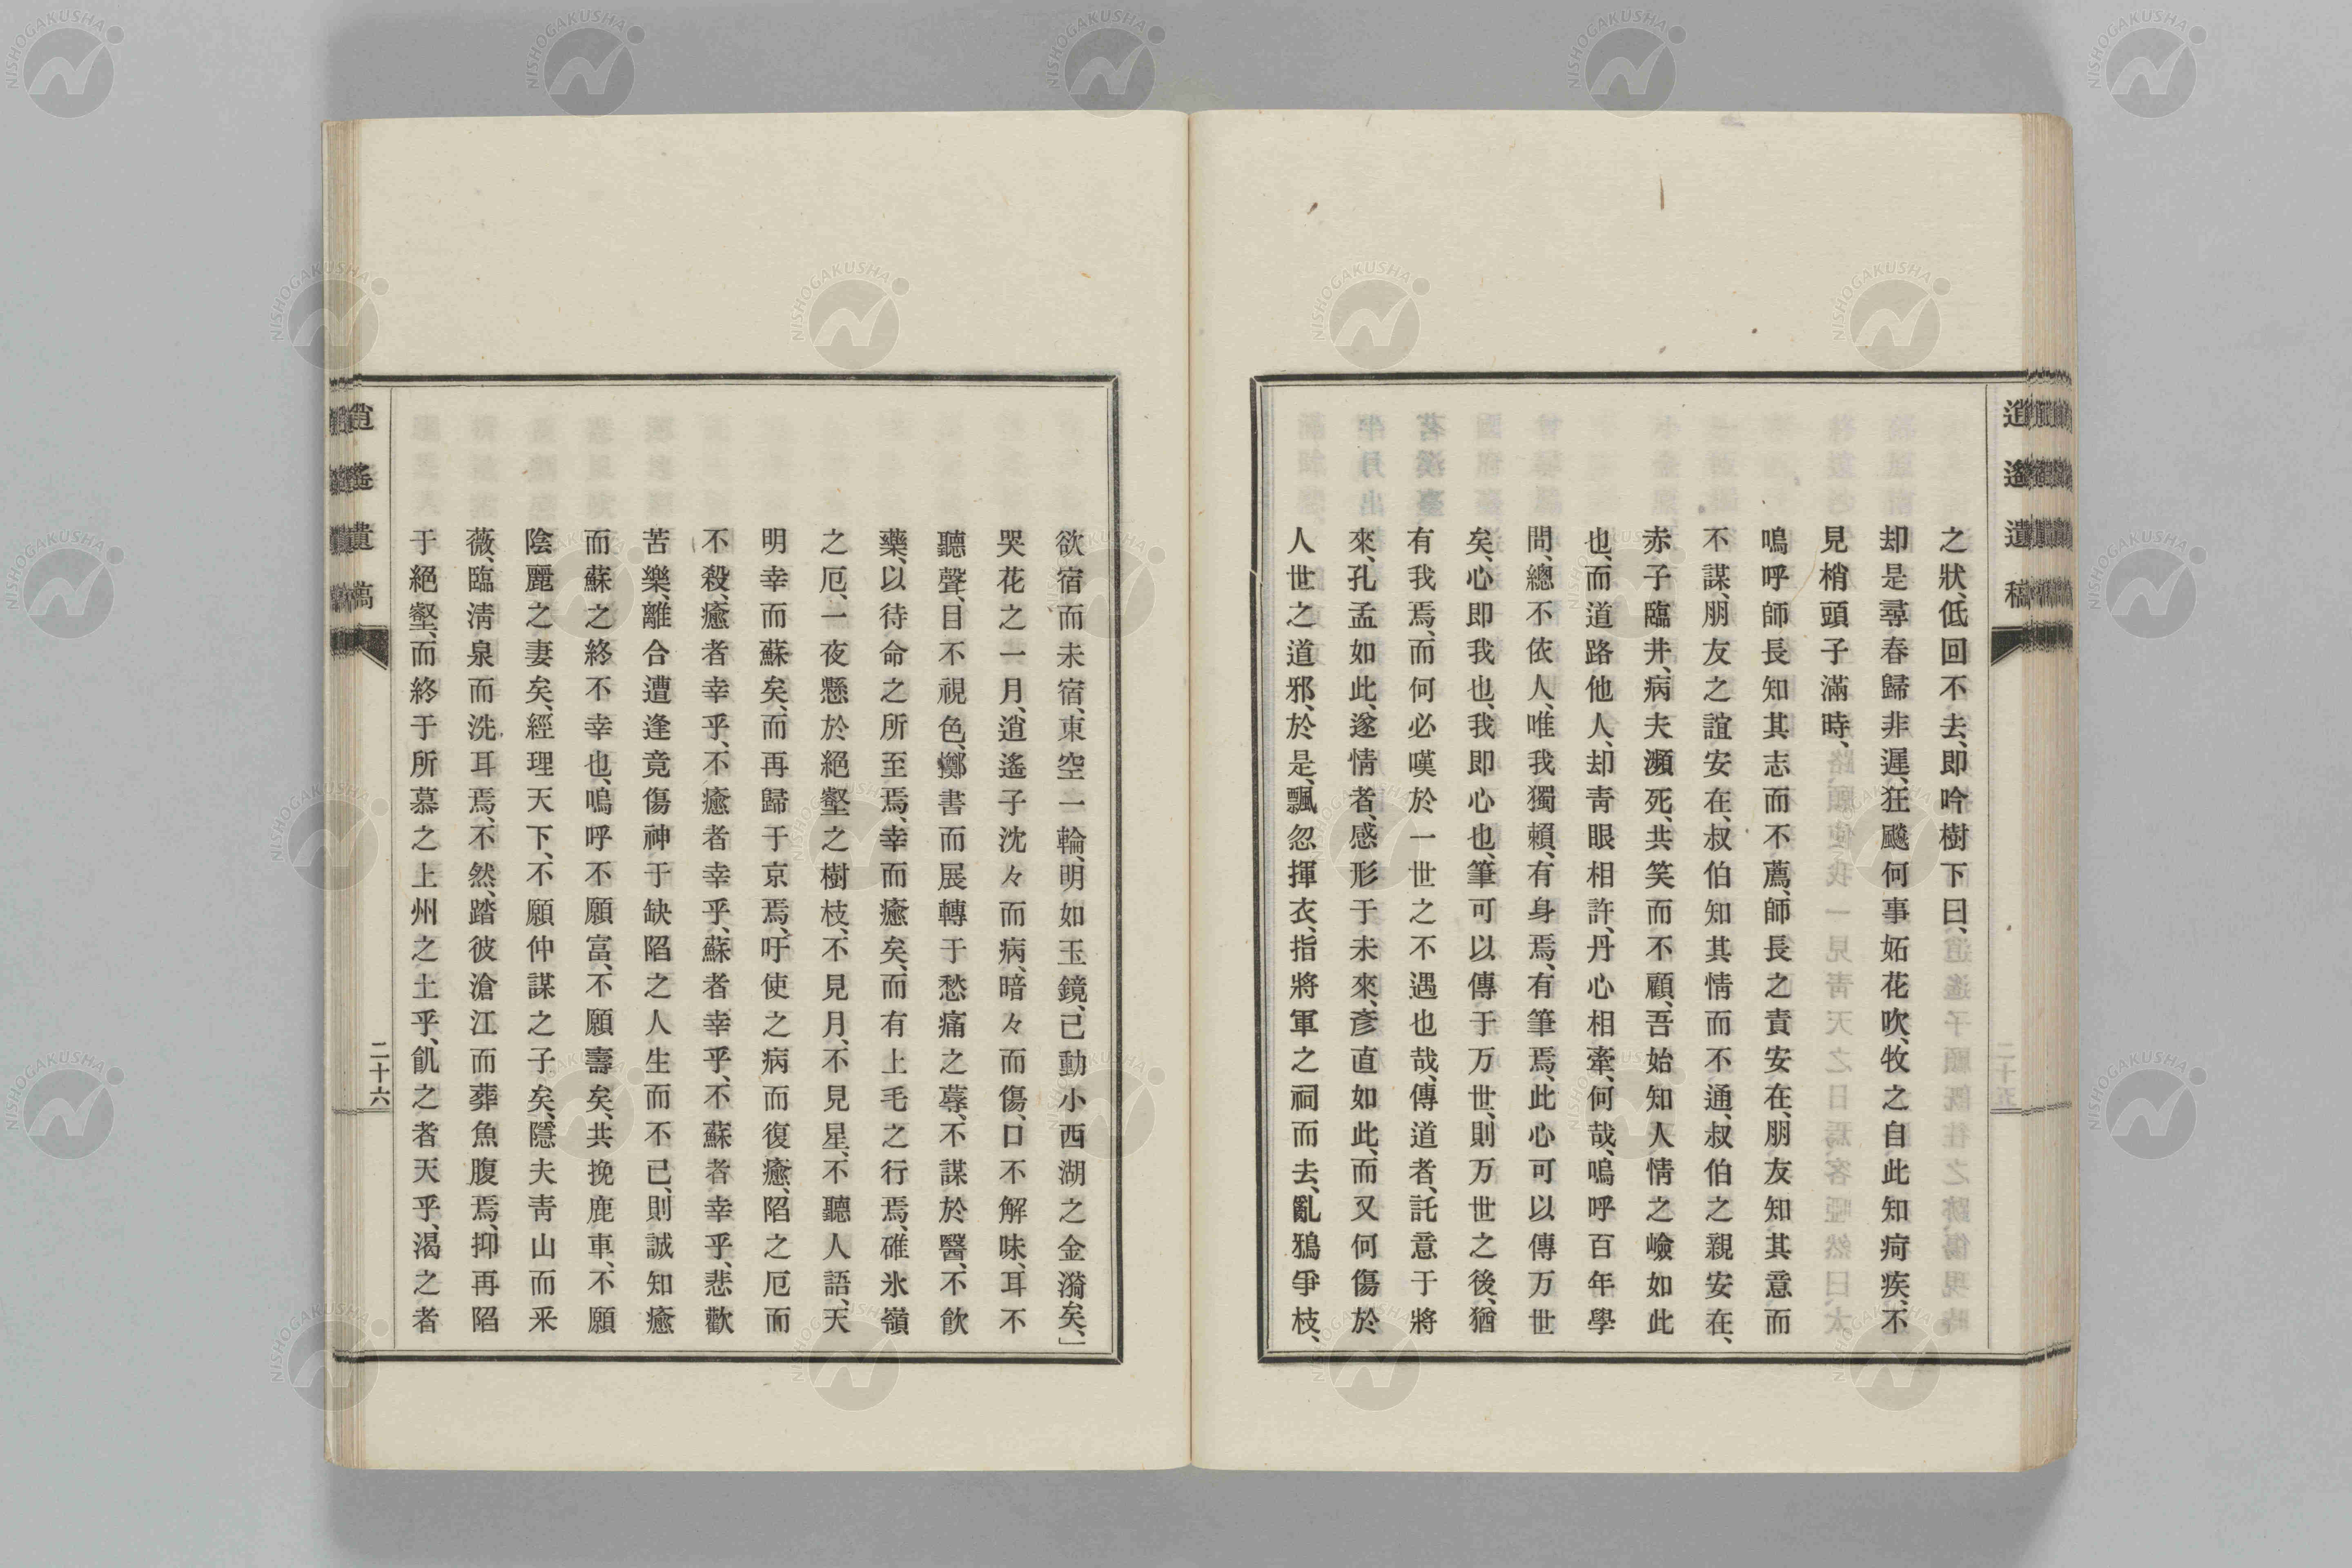 逍遙遺稿
之狀、低回不去、即吟樹下曰、
却是尋春歸非遲、狂飈何事妬花吹、牧之自此知疴疾、不
見梢頭子滿時、
嗚呼師長知其志而不薦、師長之責安在、朋友知其意而
不謀、朋友之誼安在、叔伯知其情而不通、叔伯之親安在、
赤子臨井、病夫瀕死、共笑而不顧、吾始知人情之嶮如此
也、而道路他人、却靑眼相許、丹心相牽、何哉、嗚呼百年學
問、總不依人、唯我獨賴、有身焉、有筆焉、此心可以傳万世
矣、心即我也、我即心也、筆可以傳于万世、則万世之後、猶
有我焉、而何必嘆於一世之不遇也哉、傳道者、託意于將
來、孔孟如此、遂情者、感形于未來、彥直如此、而又何傷於
人世之道邪、於是、飄忽揮衣、指將軍之祠而去、亂鴉爭枝、
欲宿而未宿、東空一輪、明如玉鏡、已動小西湖之金漪矣、」
哭花之一月、逍遙子沈々而病、暗々而傷、口不解味、耳不
聽聲、目不視色、擲書而展轉于愁痛之蓐、不謀於醫、不飮
藥、以待命之所至焉、幸而癒矣、而有上毛之行焉、碓氷嶺
之厄、一夜懸於絕壑之樹枝、不見月、不見星、不聽人語、天
明幸而蘇矣、而再歸于京焉、吁使之病而復癒、陷之厄而
不殺、癒者幸乎、不癒者幸乎、蘇者幸乎、不蘇者幸乎、悲歡
苦樂、離合遭逢竟傷神于缺陷之人生而不已、則誠知癒
而蘇之終不幸也、嗚呼不願富、不願壽矣、共挽鹿車、不願
陰麗之妻矣、經理天下、不願仲謀之子矣、隱夫靑山而釆
薇、臨淸泉而洗耳焉、不然、踏彼滄江而葬魚腹焉、抑再陷
于絕壑、而終于所慕之上州之土乎、飢之者天乎、渴之者
逍遙遺稿
二十六
NISHOGAKUSHA